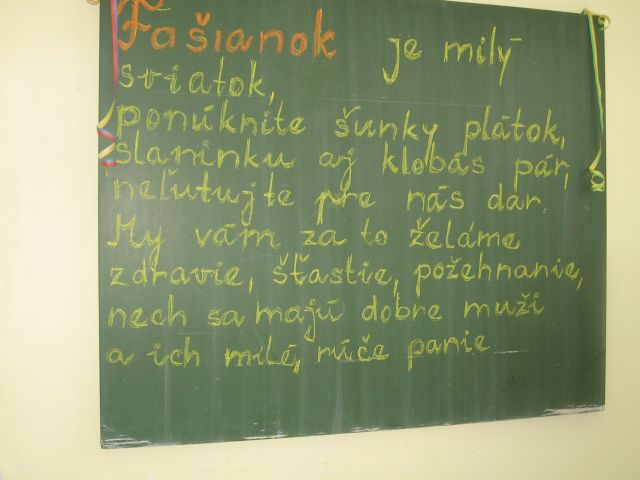 Fašianok je milý
sviatok,
ponúknite šunky plátok,
slaninku aj klobás pár,
neľutujte pre nás dar.
My vám za to želáme
zdravie, šťastie, požehnanie,
nech sa majú dobre muži
a ich milé, rúče panie